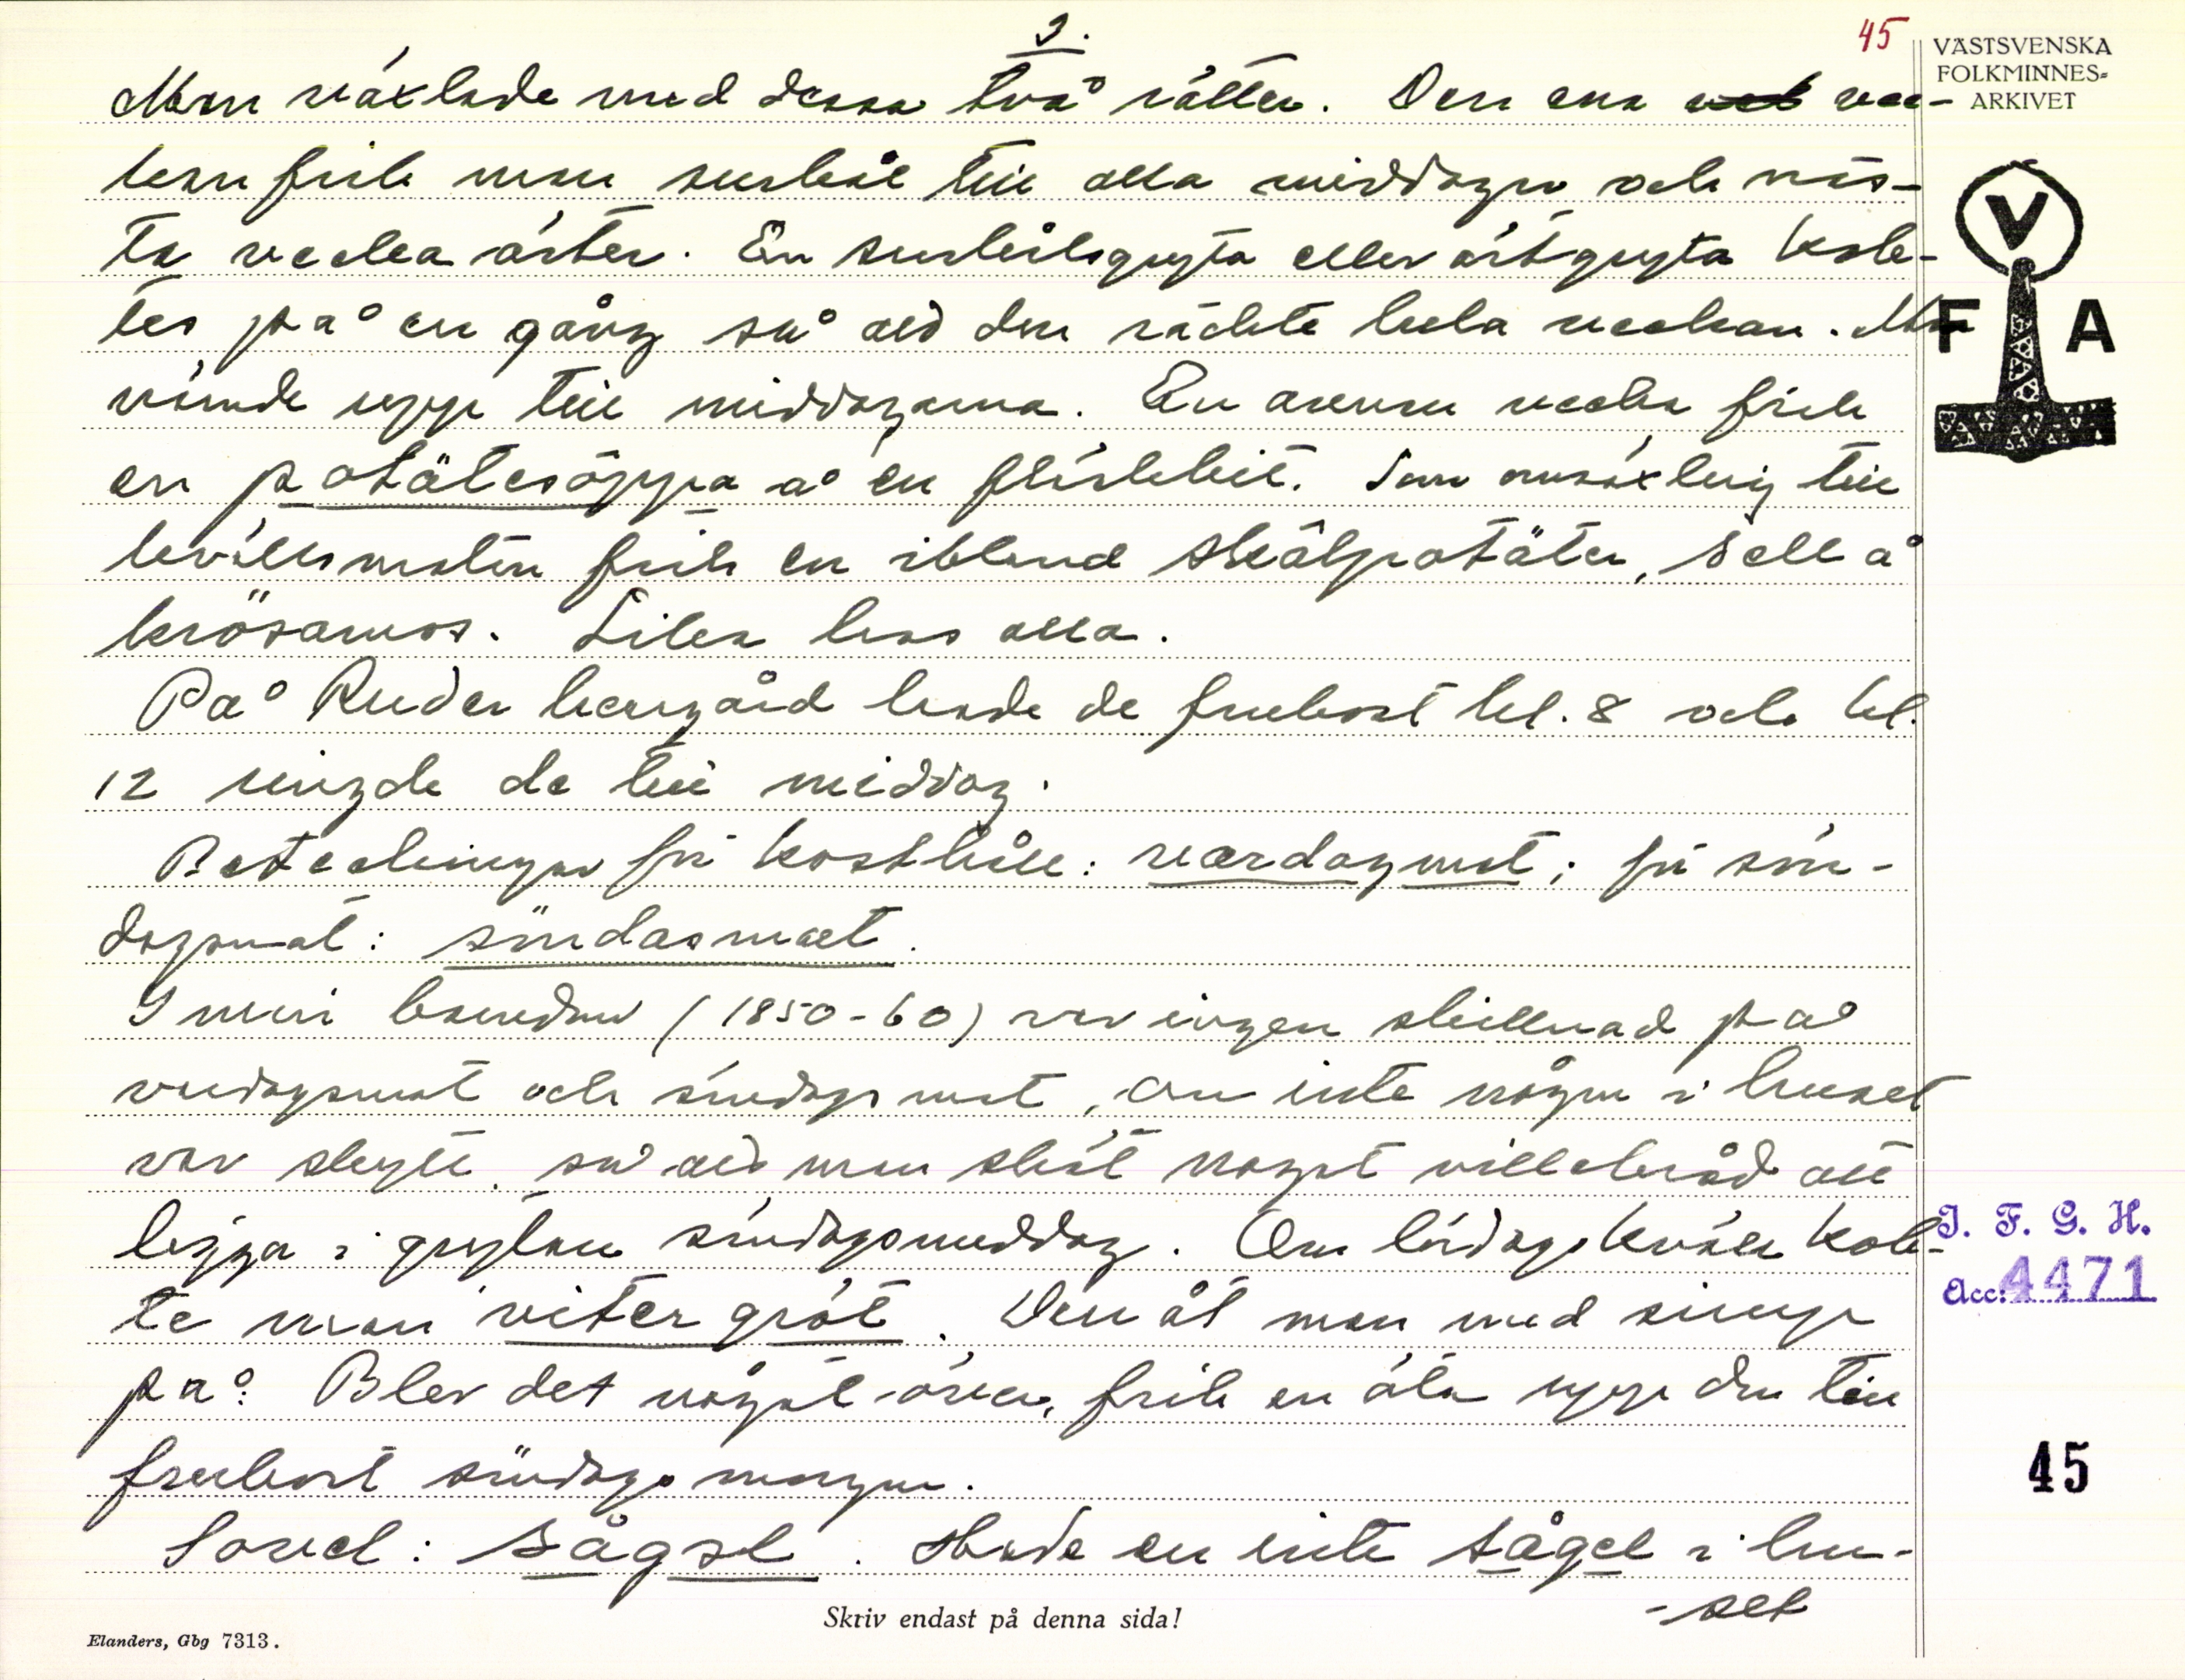 3.
45
VÄSTSVENSKA
FOLKMINNES-
ARKIVET
Man växlade med dessa två rätter. Den ena vec-
kan fick man surkål till alla middagar och näs-
ta vecka ärter. En surkålsgryta eller ärtgryta kok-
tes på en gång så att den räckte hela veckan. Man
värmde upp till middagarna. En annan vecka fick
en potätesöppa å en fläskbit. Som omväxling till
kvällsmaten fick en ibland skålpotäter, sell å
krösamos. Lika hos alla.
På Ryder herrgård hade de frukost kl. 8 och kl.
12 ringde de till middag.
Beteckningar för kosthåll: værdagmat; för sön-
dagsmat: söndasmæt.
I min barndom (1850-60) var ingen skillnad på
vardagsmat och söndagsmat, om inte någon i huset
var skytt, så att man sköt något villebråd att
lägga i grytan söndagsmiddag. Om lördagskväll kok-
te man viter gröt. Den åt man med sirup
på. Blev det något över, fick en äta upp den till
frukost söndagsmorgon.
Sovel: sågəl. Hade en inte sågel i hu-
-set
V
F A
I. F. G. H.
Acc: 4471
45
Skriv endast på denna sida!
Elanders, Gbg 7313.